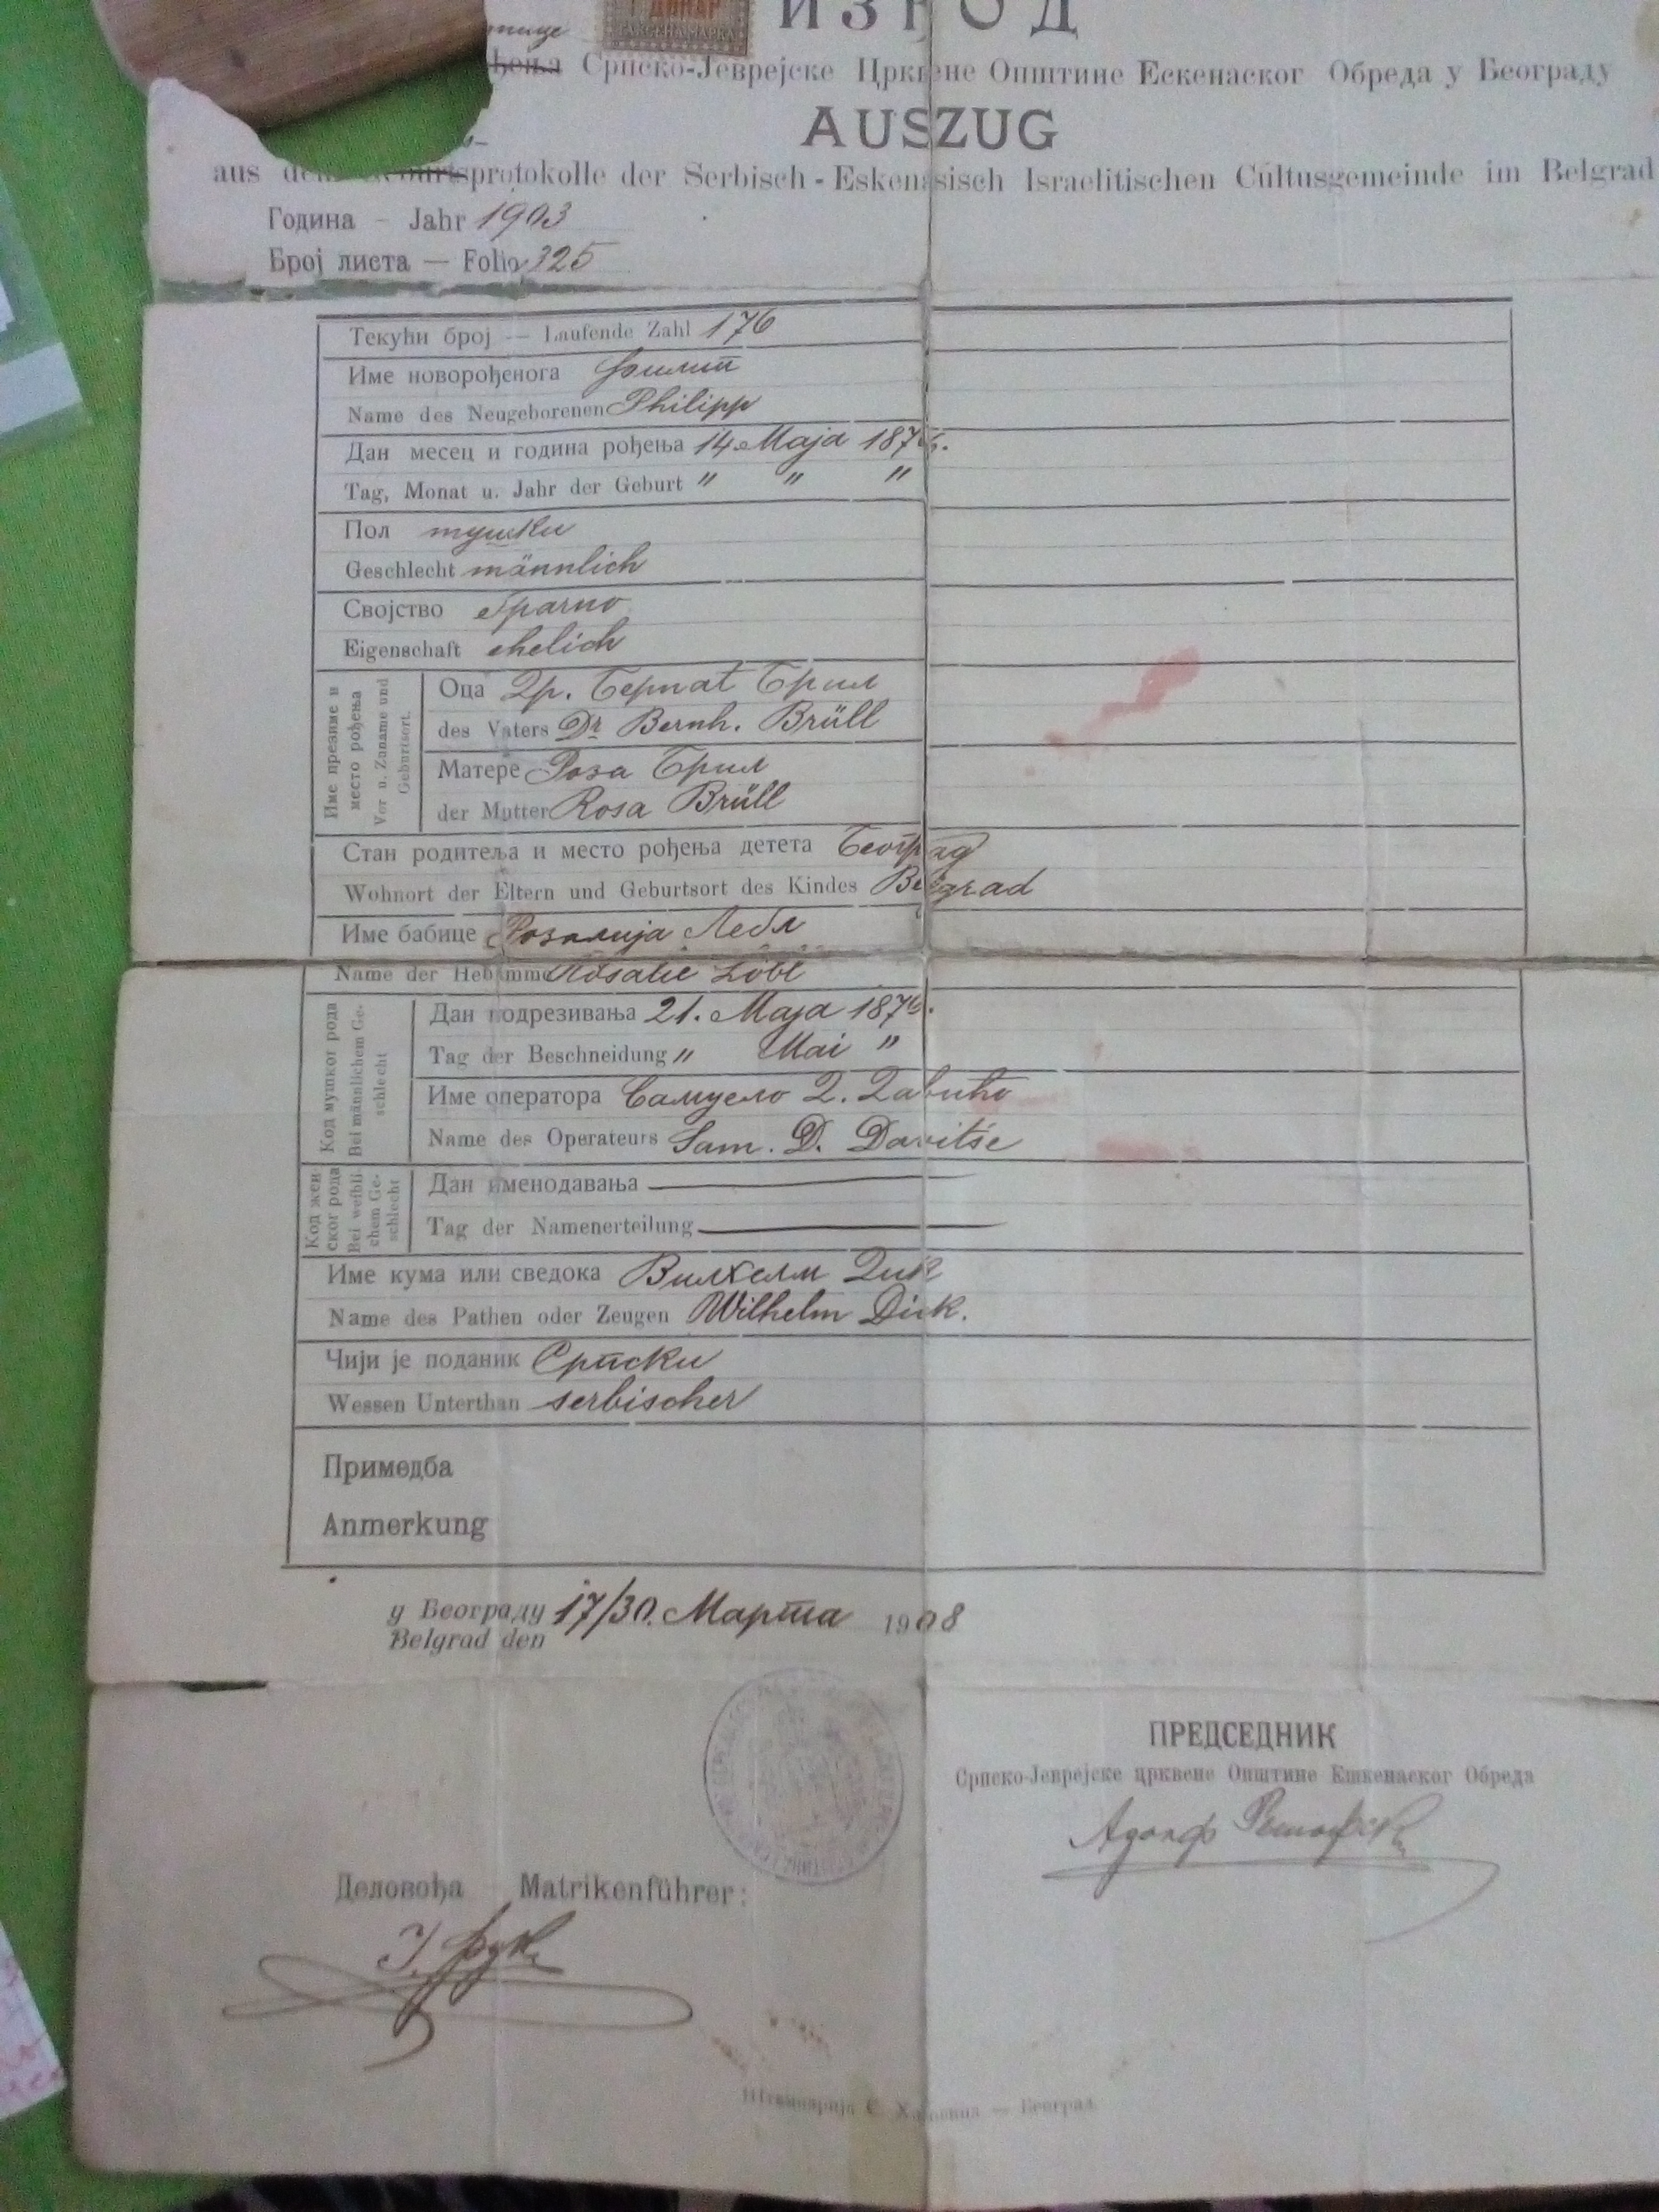 ИЗВОД
ДИНАР
ТАКСЕНА МАРКА
Српско-Јеврејске Црквене Општине Ескенаског Обреда у Београду
AUSZUG
aus dem Geburtsprotokolle der Serbisch - Eskenasisch Israelitischen Cultusgemeinde im Belgrad
Година — Jahr 1903
Број листа — Folio 325
Текући број — Laufende Zahl 176
Име новорођенога Филип
Name des Neugeborenen Philipp
Дан месец и година рођења 14. Маја 1876.
Tag, Monat u. Jahr der Geburt " " "
Пол мушки
Geschlecht männlich
Својство брачно
Eigenschaft ehelich
Име презиме и место рођења
Vor u. Zuname und Geburtsort.
Оца Др. Бернат Брил
des Vaters Dr Bernh. Brüll
Матере Роза Брил
der Mutter Rosa Brüll
Стан родитеља и место рођења детета Београд
Wohnort der Eltern und Geburtsort des Kindes Belgrad
Име бабице Розалија Лебл
Name der Hebamme Rosalie Löbl
Код мушког рода
Bei männlichem Geschlecht
Дан подрезивања 21. Маја 1876.
Tag der Beschneidung " Mai "
Име оператора Самуело Д. Давићо
Name des Operateurs Sam. D. Davitše
Код женског рода
Bei weiblichem Geschlecht
Дан именодавања
Tag der Namenerteilung
Име кума или сведока Вилхелм Дик
Name des Pathen oder Zeugen Wilhelm Dick.
Чији је поданик Српски
Wessen Unterthan serbischer
Примедба
Anmerkung
у Београду 17/30. Марта 1908
Belgrad den
ПРЕДСЕДНИК
Српско-Јеврејске црквене Општине Ешкенаског Обреда
Адолф
Деловођа Matrikenführer: